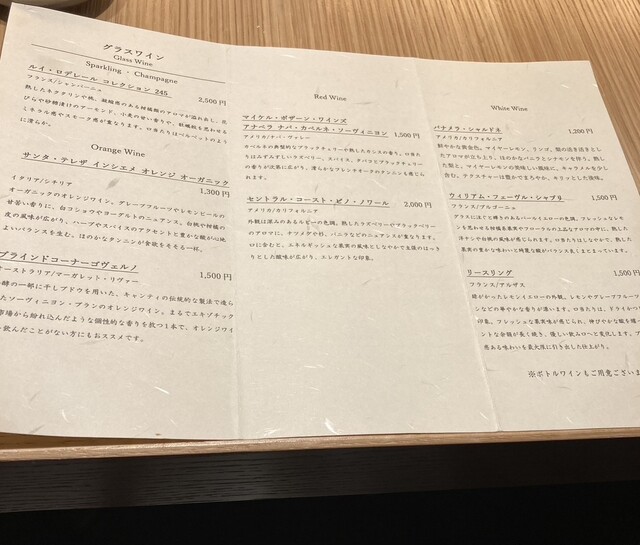 グラスワイン
Glass Wine
Sparkling・Champagne
ルイ・ロデレール コレクション 245
2,500円
フランス/シャンパーニュ
熟したネクタリンや桃、凝縮感のある柑橘類のアロマが溢れ出し、花
びらや砂糖漬けのアーモンド、小麦の甘い香りや、牡蠣殻を思わせる
ミネラル感やスモーク感が重なります。口当たりはベルベットのよう
に滑らか。
Orange Wine
サンタ・テレザ インシエメ オレンジ オーガニック
1,300円
イタリア/シチリア
オーガニックのオレンジワイン。グレープフルーツやレモンピールの
甘苦い香りに、白コショウやヨーグルトのニュアンス。白桃や柑橘の
皮の風味が広がり、ハーブやスパイスのアクセントと豊かな酸が心地
よいバランスを生む。ほのかなタンニンが食欲をそそる一杯。
ブラインドコーナーゴヴェルノ
1,500円
オーストラリア/マーガレット・リヴァー
酵の一部に干しブドウを用いた、キャンティの伝統的な製法で造ら
たソーヴィニヨン・ブランのオレンジワイン。まるでエキゾチック
市場から紛れ込んだような個性的な香りを放つ1本で、オレンジワイ
を飲んだことがない方にもおススメです。
Red Wine
マイケル・ポザーン・ワインズ
アナベラ ナパ・カベルネ・ソーヴィニヨン
1,500円
アメリカ/ナパ・ヴァレー
カベルネの典型的なブラックチェリーや熟したカシスの香り。口当た
りはみずみずしいラズベリー、スパイス、タバコとブラックチェリー
の香りが次第に広がり、滑らかなフレンチオークのタンニンも感じら
れます。
セントラル・コースト・ピノ・ノワール
2,000円
アメリカ/カリフォルニア
外観は深みのあるルビーの色調。熟したラズベリーやブラックベリー
のアロマに、ナツメグや杉、バニラなどのニュアンスが重なります。
口に含むと、エネルギッシュな果実の風味としなやかで主張のはっき
りとした酸味が広がり、エレガントな印象。
White Wine
パナメラ・シャルドネ
1,200円
アメリカ/カリフォルニア
鮮やかな黄金色。マイヤーレモン、リンゴ、梨の活き活きとし
たアロマが立ち上り、ほのかなバニラとシナモンを伴う。熟し
た梨と、マイヤーレモンの美味しい風味に、キャラメルを少し
含む。テクスチャーは豊かでまろやか。キリっとした後味。
ウィリアム・フェーヴル・シャブリ
1,500円
フランス/ブルゴーニュ
グラスに注ぐと輝きのあるパールイエローの色調。フレッシュなレモ
ンを思わせる柑橘系やフローラルの上品なアロマの中に、熟した
洋ナシや白桃の風味が感じられます。口当たりはしなやかで、熟した
果実の豊かな味わいと綺麗な酸がバランス良くまとまっています。
リースリング
1,500円
フランス/アルザス
緑がかったレモンイエローの外観。レモンやグレープフルー
ンなどの華やかな香りが漂います。口当たりは、ドライかつ
印象。フレッシュな果実味が感じられ、伸びやかな酸を纏
ントな余韻が長く続き、優しい飲み口へと変化します。ブ
感ある味わいを最大限に引き出した仕上がり。
※ボトルワインもご用意ございま